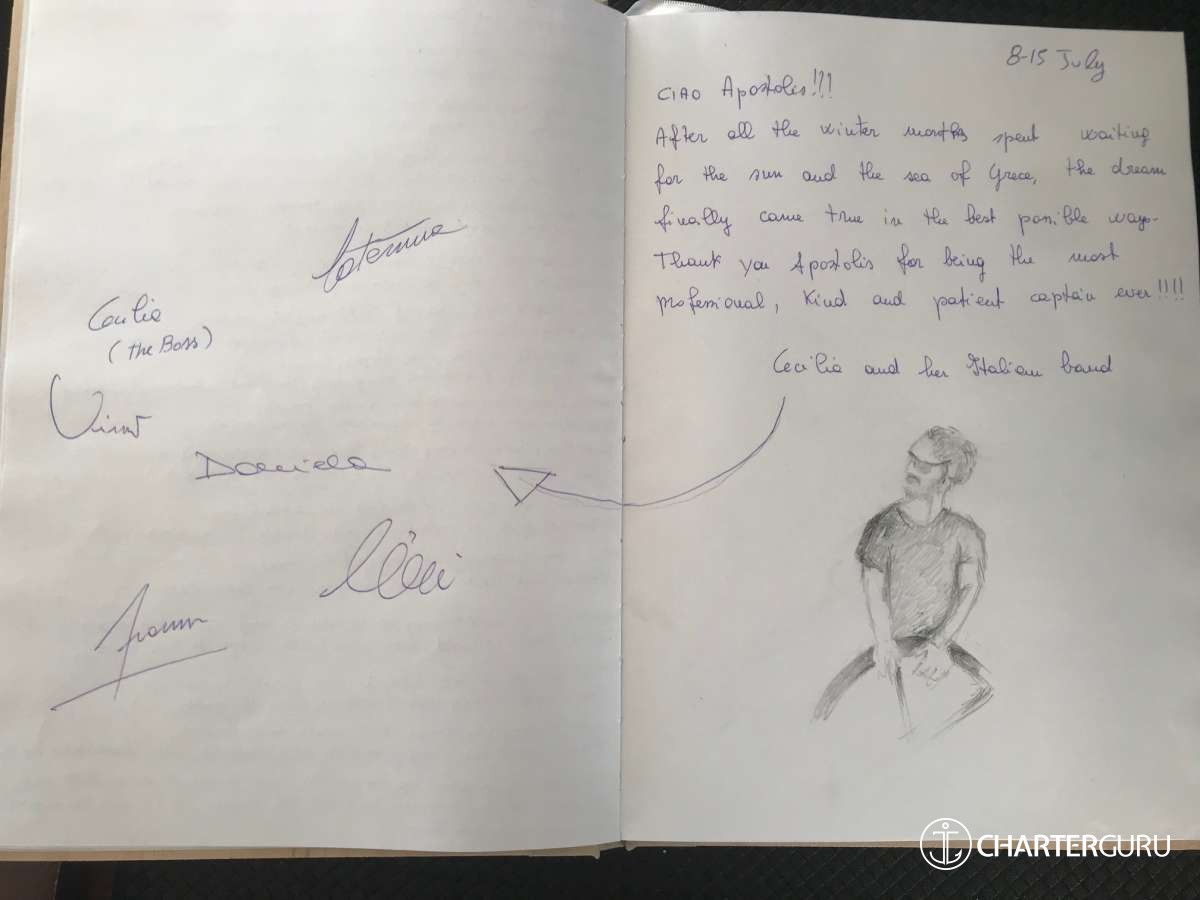 Caterina
Cecilia
(the Boss)
Daniela
8-15 July
CIAO Apostolis!!!
After all the winter months spent waiting
for the sun and the sea of Grece, the dream
finally came true in the best possible way.
Thank you Apostolis for being the most
professional, kind and patient captain ever!!!!
Cecilia and her Italian band
CHARTERGURU